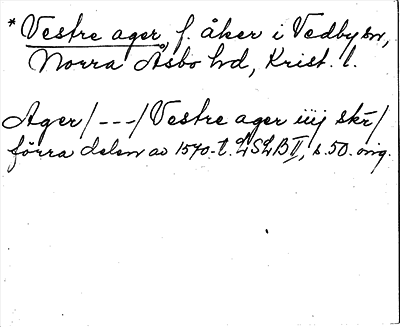 * Vestre ager f. åker i Vedby sn,
Norra Åsbo hd, Krist. l.
Ager/---/Vestre ager iiij skr/
förra delen av 1570-t. LSLB II, s. 50. orig.